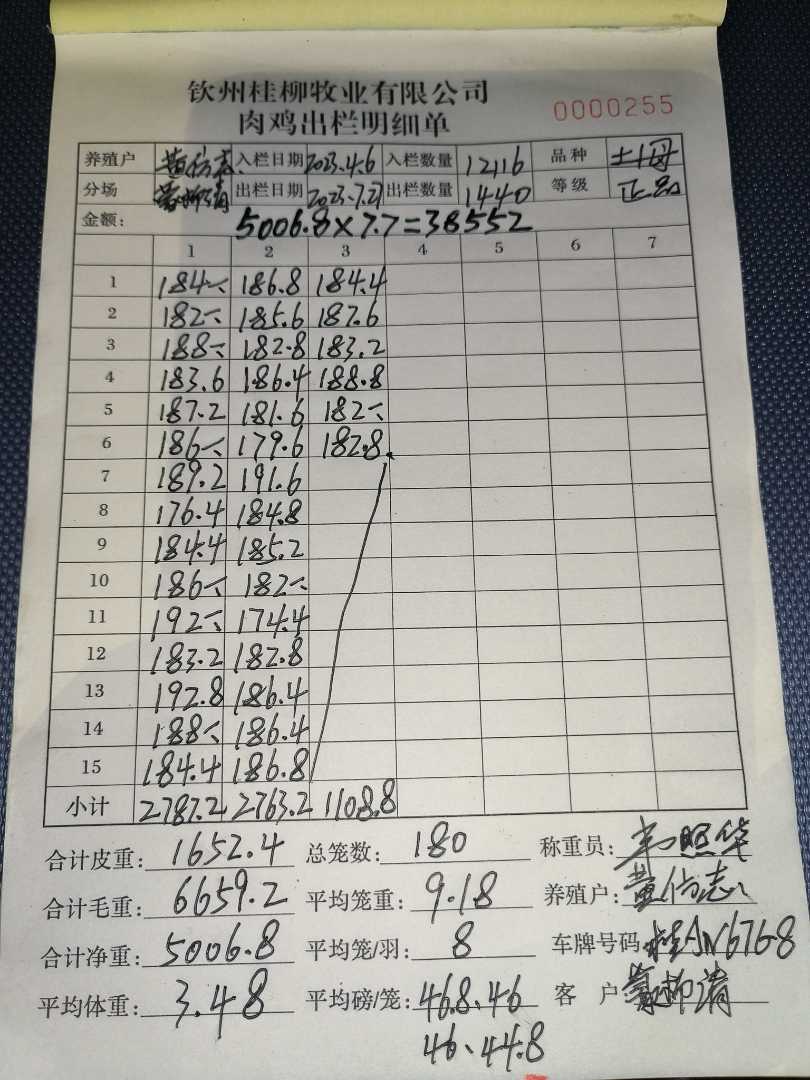 钦州桂柳牧业有限公司
肉鸡出栏明细单 0000255
养殖户 入栏日期 2023.4.6 入栏数量 12116 品种 土1母
分场 出栏日期 2023.7.27 出栏数量 1440 等级 正品
金额: 5006.8×7.7=38552
1 2 3 4 5 6 7
1 184 186.8 184.4
2 182 185.6 187.6
3 188 182.8 183.2
4 183.6 186.4 188.8
5 187.2 181.6 182
6 186 179.6 182.8
7 189.2 191.6
8 176.4 184.8
9 184.4 185.2
10 186 182
11 192 174.4
12 183.2 182.8
13 192.8 186.4
14 188 186.4
15 184.4 186.8
小计 2787.2 2763.2 1108.8
合计皮重: 1652.4 总笼数: 180 称重员:
合计毛重: 6659.2 平均笼重: 9.18 养殖户:
合计净重: 5006.8 平均笼/羽: 8 车牌号码
平均体重: 3.48 平均磅/笼: 46.8、46 客户
46、44.8